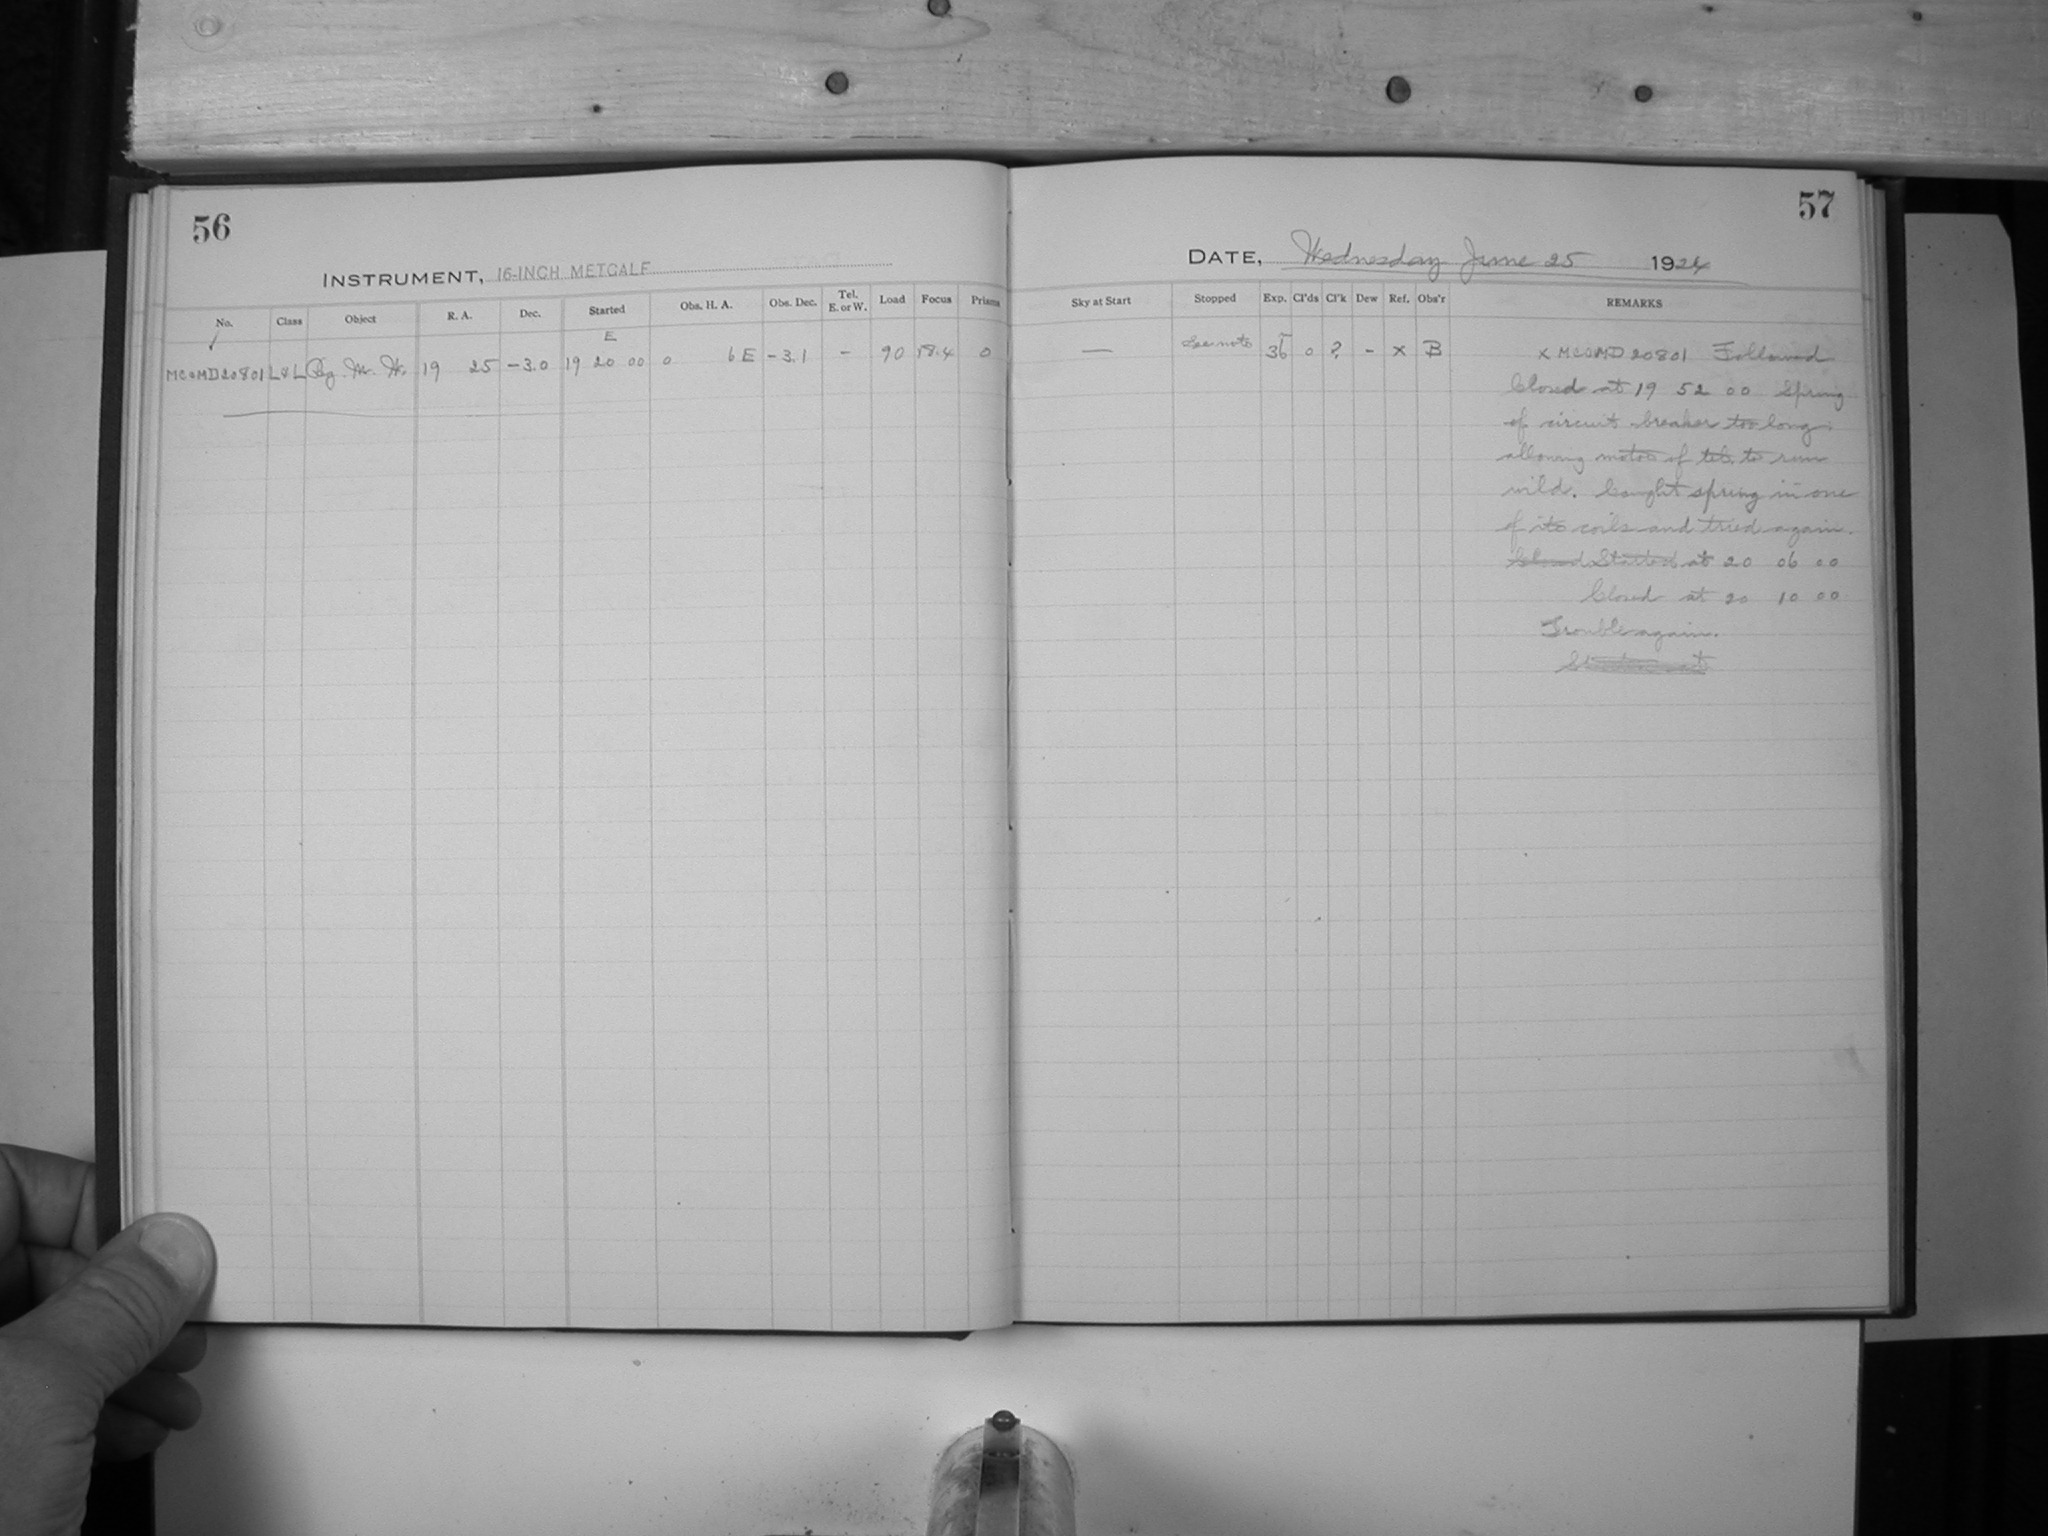 56
INSTRUMENT, 16-INCH METCALF
No. Class Object R. A. Dec. Started Obs. H. A. Obs. Dec. Tel. E. or W. Load Focus Prisms
E
MC&MD20801 L&L Rg. M. W. 19 25 -3.0 19 20 00 0 6 E -3.1 - 90 18.4 0
57
DATE, Wednesday June 25 1924
Sky at Start Stopped Exp. Cl'ds Cl'k Dew Ref. Obs'r REMARKS
— See note 36 0 ? - x B x MC&MD20801 Followed
Closed at 19 52 00 Spring
of circuit breaker too long
allowing motor of tel. to run
wild. Caught spring in one
of its coils and tried again.
Closed Started at 20 06 00
Closed at 20 10 00
Trouble again.